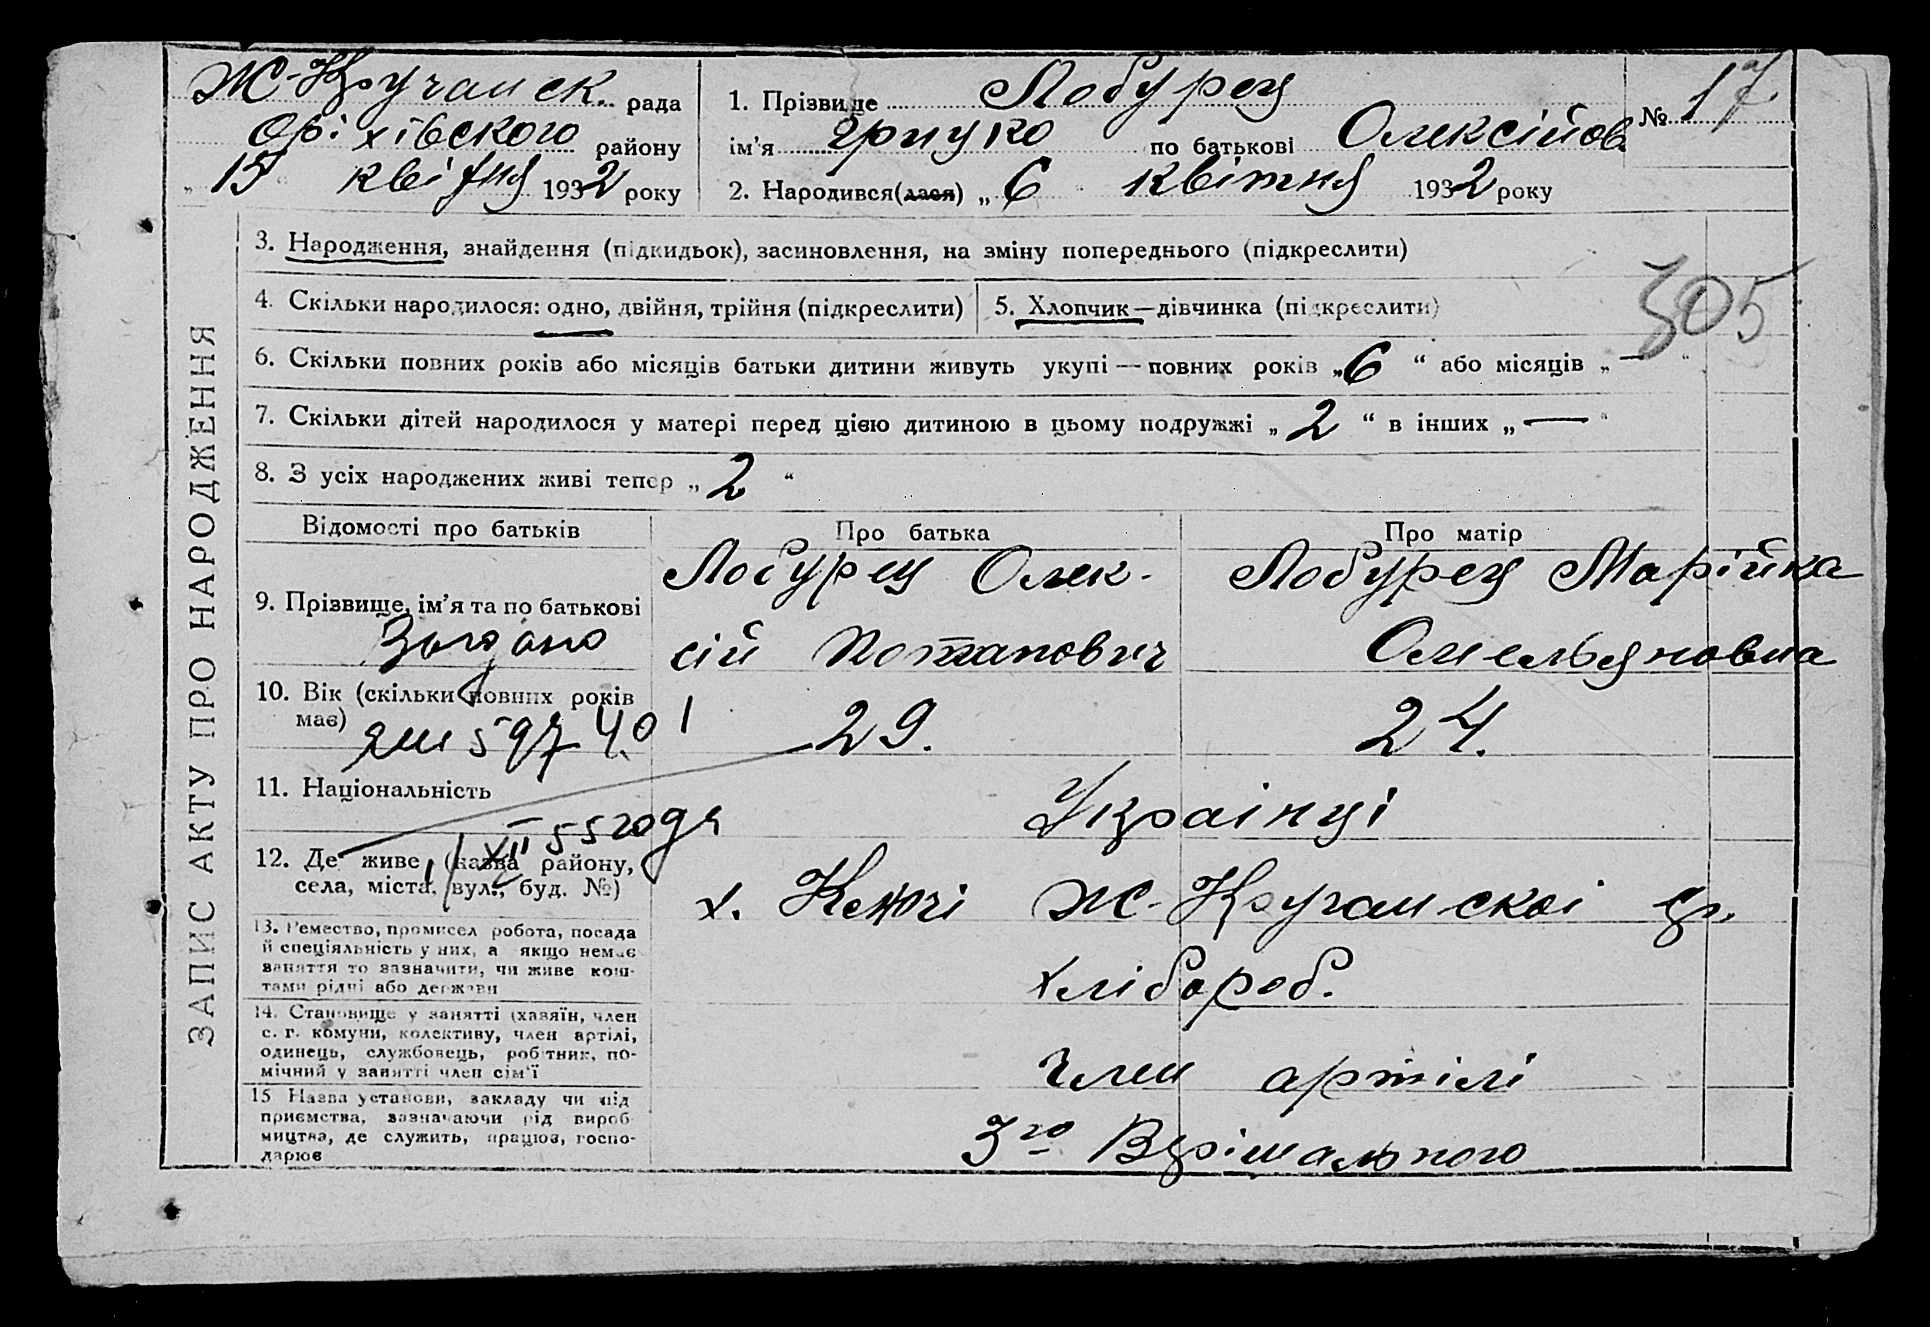 Ж-Кручанськ. рада
Оріхівского району
„ 15 " квітня 1932 року
1. Прізвище Лобурец № 17.
ім'я Грицко по батькові Олексійов.
2. Народився(лася) „ 6 " квітня 1932 року
ЗАПИС АКТУ ПРО НАРОДЖЕННЯ
3. Народження, знайдення (підкидьок), засиновлення, на зміну попереднього (підкреслити)
305
4. Скільки народилося: одно, двійня, трійня (підкреслити)
5. Хлопчик—дівчинка (підкреслити)
6. Скільки повних років або місяців батьки дитини живуть укупі — повних років „ 6 “ або місяців „ — “
7. Скільки дітей народилося у матері перед цією дитиною в цьому подружжі „ 2 “ в інших „ — “
8. З усіх народжених живі тепер „ 2 “
Відомості про батьків
Про батька
Про матір
9. Прізвище, ім'я та по батькові
Лобурец Олек-
сій Потапович
Лобурец Марійка
Омельяновна
10. Вік (скільки повних років
має)
29.
24.
11. Національність
Українці
XII 55 года
12. Де живе (назва району,
села, міста, вул., буд. №)
х. Ж-Кручанскоі
13. Ремество, промисел робота, посада
й спеціяльність у них, а якщо немає
заняття то зазначити, чи живе кош-
тами рідні або держави
хлібороб.
14. Становище у занятті (хазяїн, член
с. г. комуни, колективу, член артілі,
одинець, службовець, робітник, по-
мічний у занятті член сім'ї
член артілі
15 Назва установи, закладу чи під
приємства, зазначаючи рід вироб
ництва, де служить, працює, госпо-
дарює
3го Вирішального